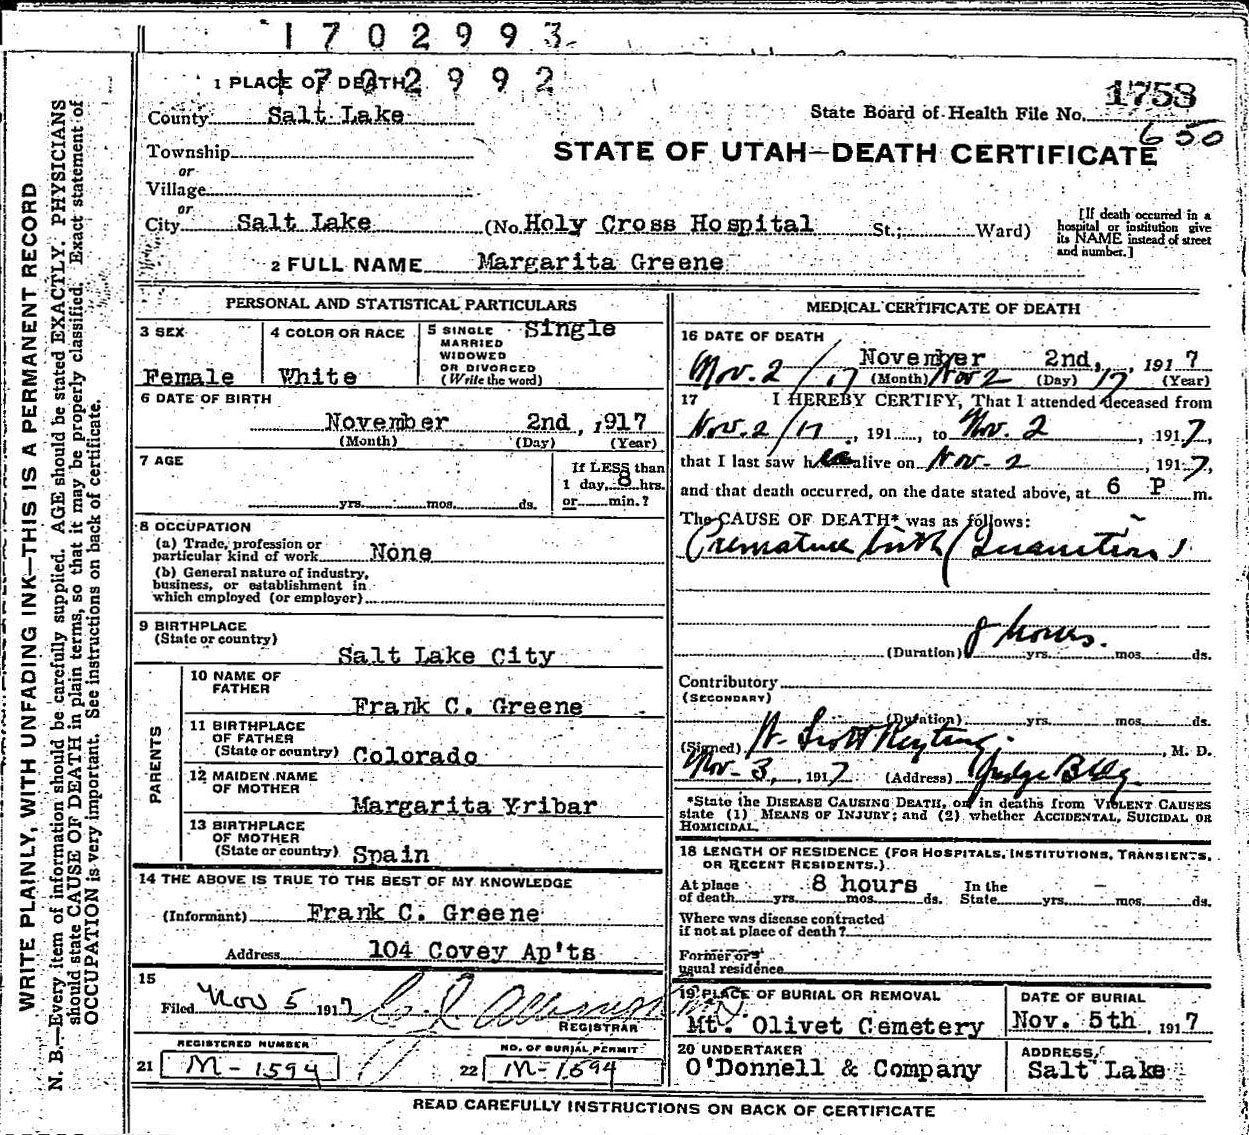 1702993
1702992
1 PLACE OF DEATH
County Salt Lake
State Board of Health File No. 1758
650
Township
or
Village
or
STATE OF UTAH—DEATH CERTIFICATE
City Salt Lake (No. Holy Cross Hospital St.; Ward)
[If death occurred in a
hospital or institution give
its NAME instead of street
and number.]
2 FULL NAME Margarita Greene
PERSONAL AND STATISTICAL PARTICULARS
3 SEX
Female
4 COLOR OR RACE
White
5 SINGLE
MARRIED
WIDOWED
OR DIVORCED
(Write the word)
Single
6 DATE OF BIRTH
November 2nd, 1917
(Month) (Day) (Year)
7 AGE
yrs. mos. ds.
If LESS than
1 day, 8 hrs.
or min.?
8 OCCUPATION
(a) Trade, profession or
particular kind of work None
(b) General nature of industry,
business, or establishment in
which employed (or employer)
9 BIRTHPLACE
(State or country)
Salt Lake City
PARENTS
10 NAME OF
FATHER
Frank C. Greene
11 BIRTHPLACE
OF FATHER
(State or country) Colorado
12 MAIDEN NAME
OF MOTHER
Margarita Yribar
13 BIRTHPLACE
OF MOTHER
(State or country) Spain
14 THE ABOVE IS TRUE TO THE BEST OF MY KNOWLEDGE
(Informant) Frank C. Greene
Address 104 Covey Ap'ts
15
Filed Nov 5 1917
REGISTRAR
REGISTERED NUMBER
21 M-1594
NO. OF BURIAL PERMIT
22 M-1594
MEDICAL CERTIFICATE OF DEATH
16 DATE OF DEATH
November 2nd, 1917
Nov. 2/17 (Month) Nov 2 (Day) 17 (Year)
17 I HEREBY CERTIFY, That I attended deceased from
Nov. 2/17, 191 , to Nov. 2, 1917,
that I last saw her alive on Nov- 2, 1917,
and that death occurred, on the date stated above, at 6 P m.
The CAUSE OF DEATH* was as follows:
Premature birth (Inanition)
8 hours.
(Duration) yrs. mos. ds.
Contributory
(SECONDARY)
(Duration) yrs. mos. ds.
(Signed) W. Scott Keyting. M. D.
Nov- 3, 1917 (Address) Judge Bldg
*State the DISEASE CAUSING DEATH, or, in deaths from VIOLENT CAUSES
state (1) MEANS OF INJURY; and (2) whether ACCIDENTAL, SUICIDAL OR
HOMICIDAL.
18 LENGTH OF RESIDENCE (FOR HOSPITALS, INSTITUTIONS, TRANSIENTS,
OR RECENT RESIDENTS.)
At place 8 hours In the
of death yrs. mos. ds. State yrs. mos. ds.
Where was disease contracted
if not at place of death?
Former or
usual residence
19 PLACE OF BURIAL OR REMOVAL
Mt. Olivet Cemetery
DATE OF BURIAL
Nov. 5th, 1917
20 UNDERTAKER
O'Donnell & Company
ADDRESS
Salt Lake
READ CAREFULLY INSTRUCTIONS ON BACK OF CERTIFICATE
WRITE PLAINLY, WITH UNFADING INK—THIS IS A PERMANENT RECORD
N. B.—Every item of information should be carefully supplied. AGE should be stated EXACTLY. PHYSICIANS
should state CAUSE OF DEATH in plain terms, so that it may be properly classified. Exact statement of
OCCUPATION is very important. See instructions on back of certificate.